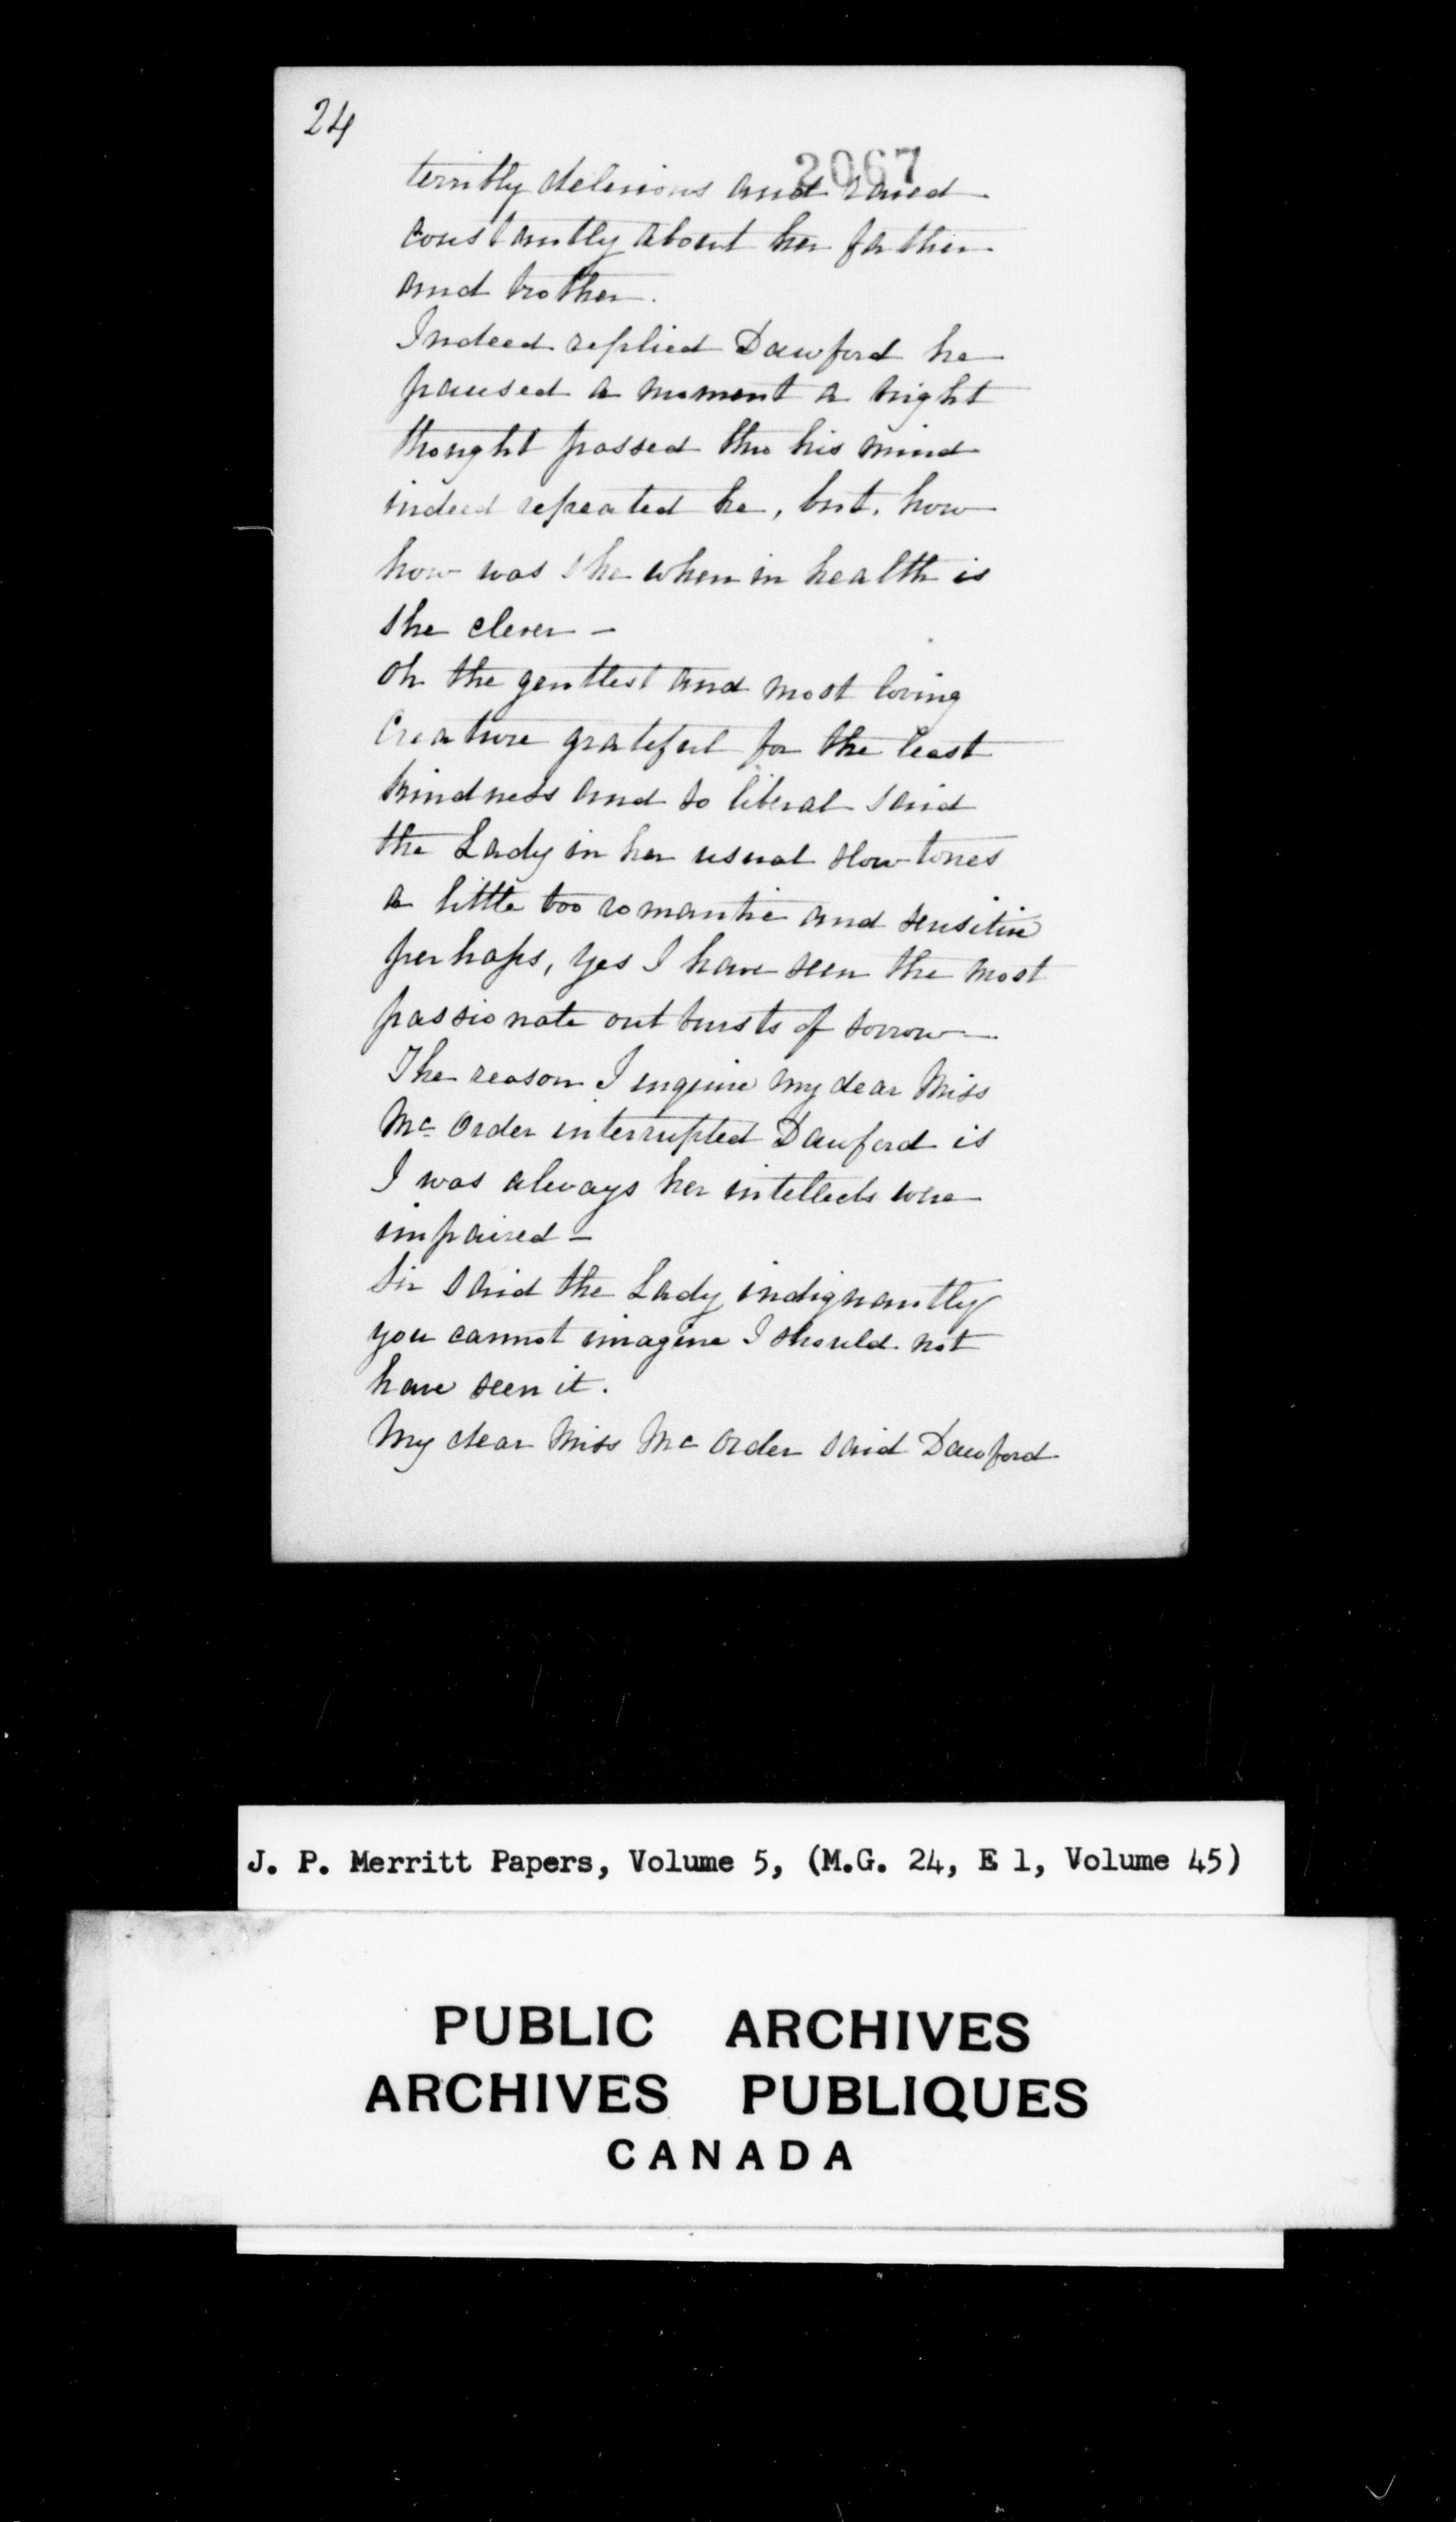 24
2067
terribly delirious and raved
constantly about her father
and brother.
Indeed replied Dawford he
paused a moment a bright
thought passed thro his mind
indeed repeated he, but, how
how was she when in health is
she clever —
Oh the gentlest and most loving
creature grateful for the least
kindness and so liberal said
the Lady in her usual slow tones
a little too romantic and sensitive
perhaps, yes I have seen the most
passionate outbursts of sorrow —
The reason I enquire my dear Miss
Mc Order interrupted Dawford is
I was always her intellects were
impaired —
Sir said the Lady indignantly
you cannot imagine I should not
have seen it.
My dear Miss Mc Order said Dawford
J. P. Merritt Papers, Volume 5, (M.G. 24, E 1, Volume 45)
PUBLIC ARCHIVES
ARCHIVES PUBLIQUES
CANADA